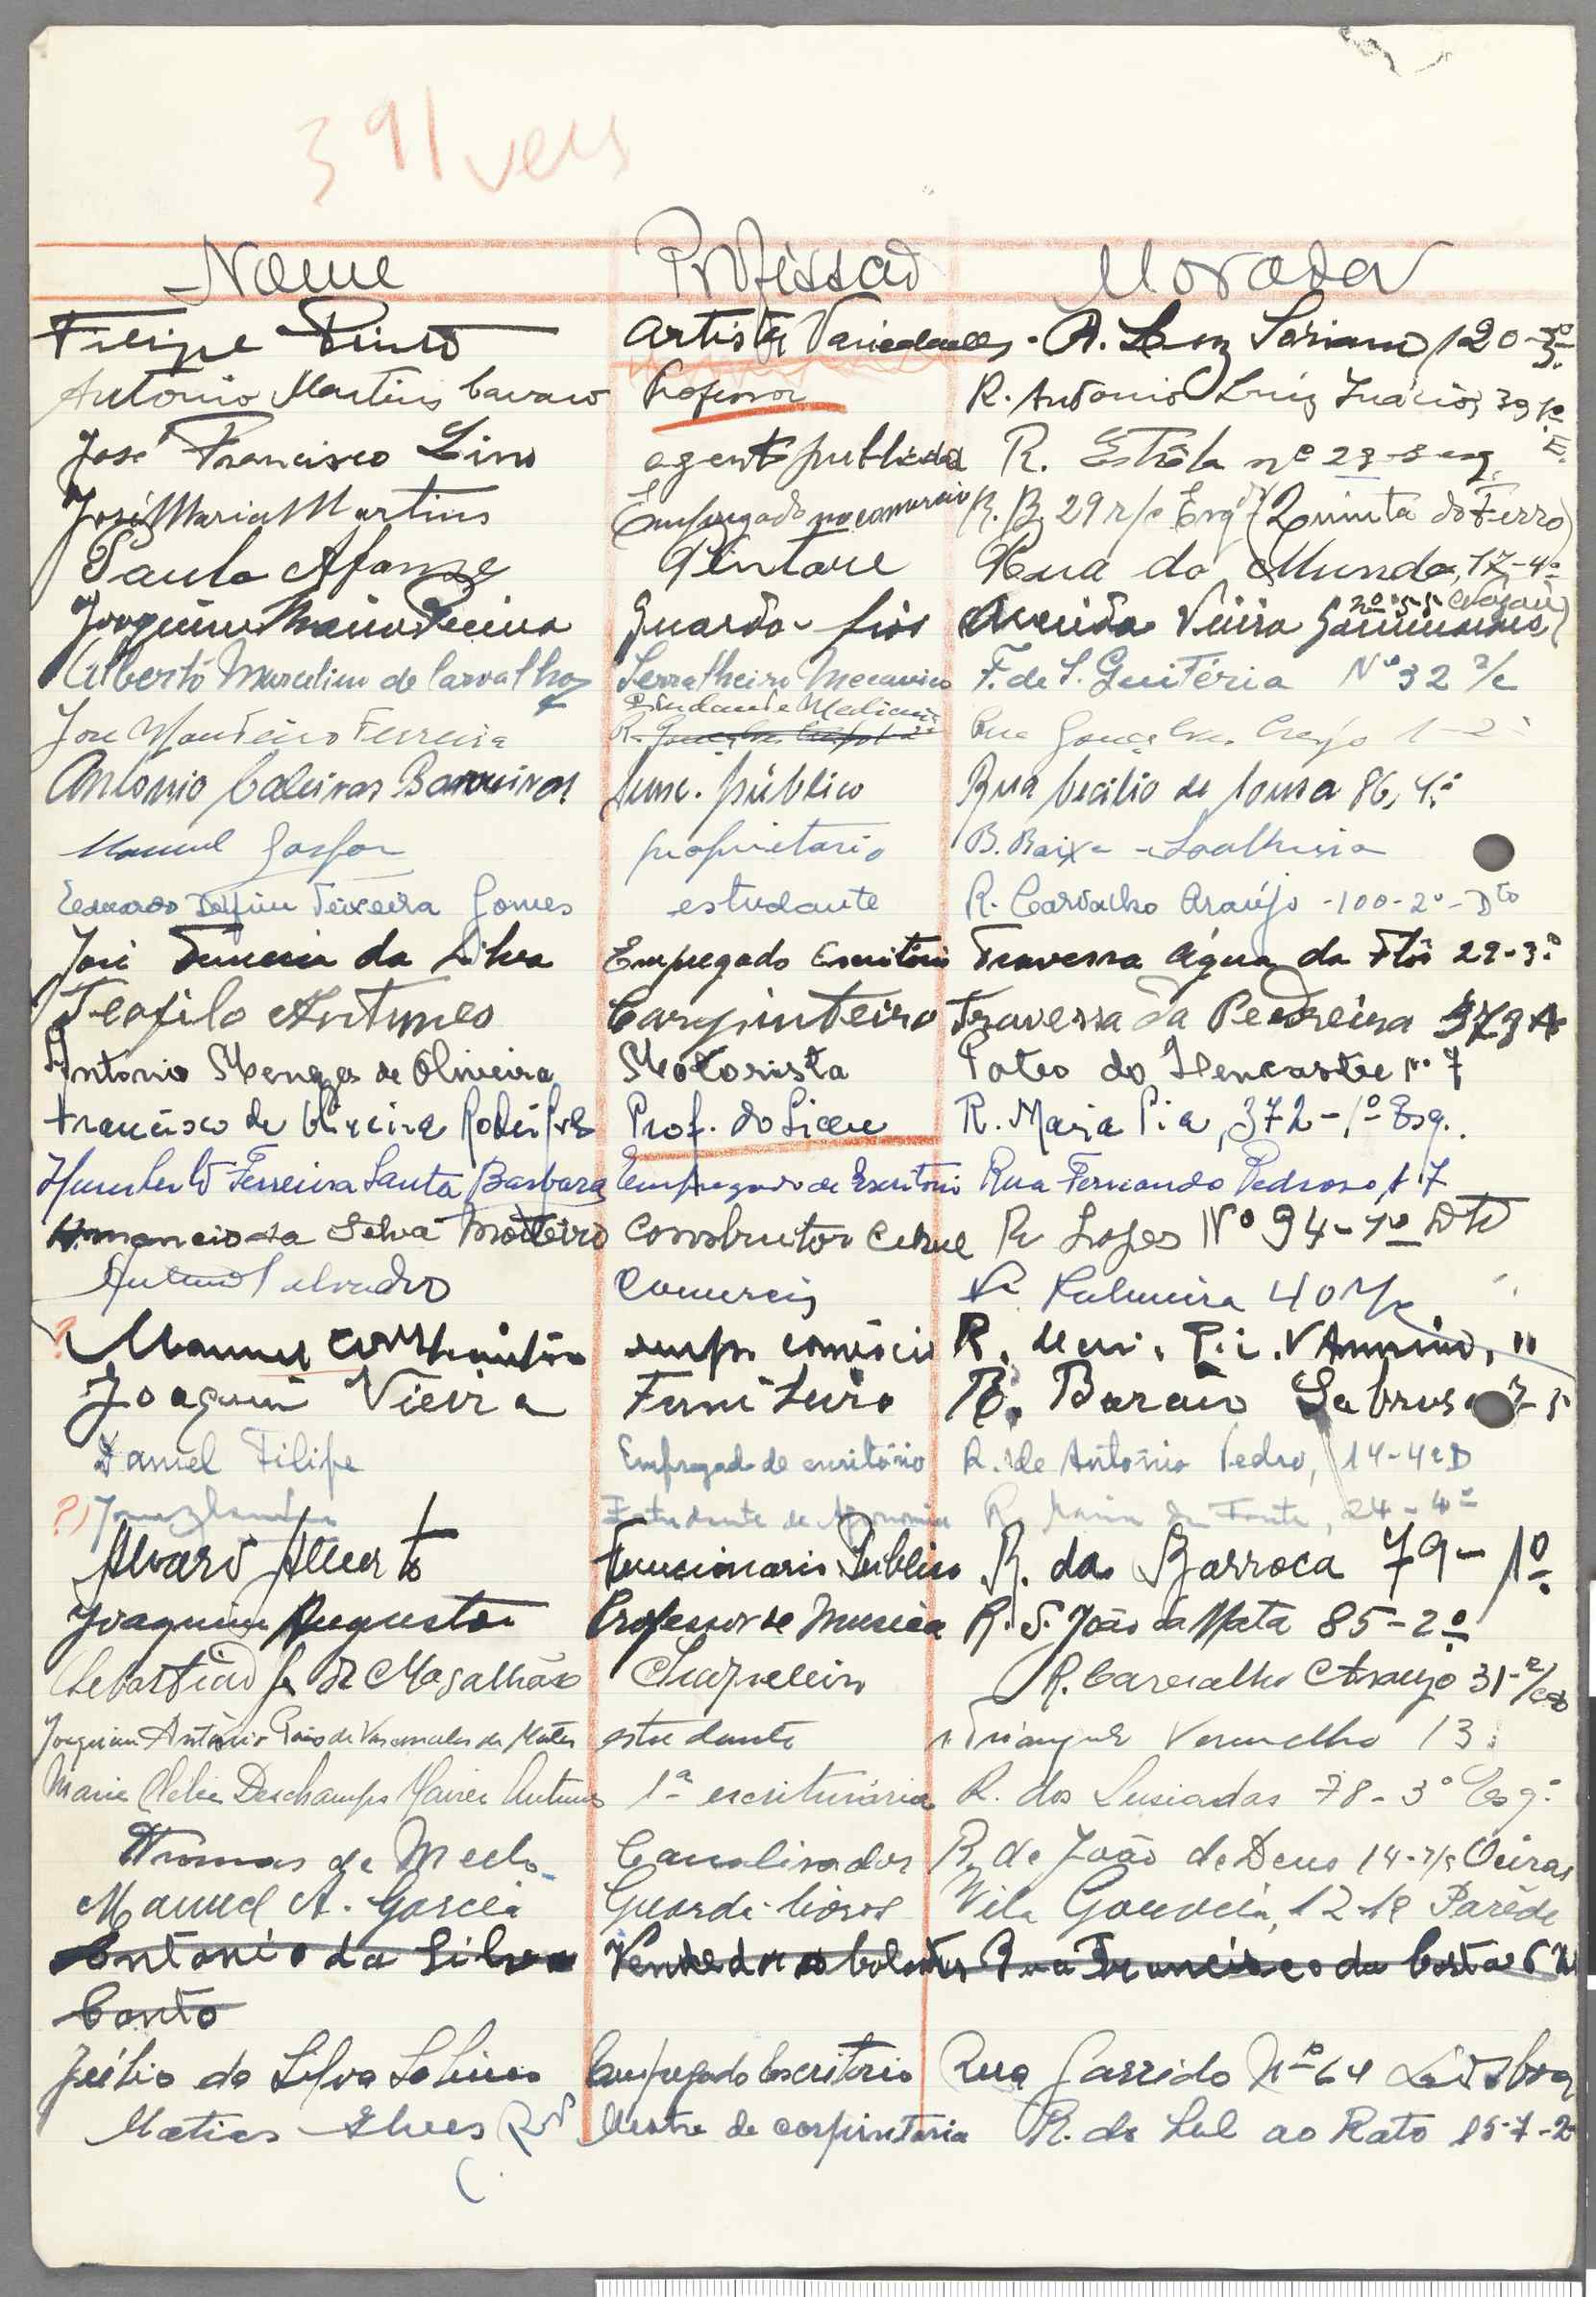 391 vers
Nome Profissão Morada
Filipe Pinto Artista Variedades - R. Luz Soriano 120-3º
António Martins Professor R. António Luiz Inácio, 39 r/c E.
José Francisco Lino agente publicidad R. Estrêla nº 29-3 esq.
José Maria Martins Empregado no comercio R. B. 29 r/c Esqº (Quinta do Ferro)
Paulo Afonso Pintore Rua do Mundo, 17-4º
Joaquim Pereira Guarda-fios Avenida Vieira Guimarães nº 55
Alberto Marcelino de Carvalho Serralheiro Mecanico F. de S. Guitéria Nº 32 r/c
José Monteiro Ferreira Estudante Medicina Rua Gonçalves Crespo 1-2º
António Caleiras Barreiros func. público Rua Cecilio de Sousa 86, 4º
Manuel Gaspar proprietario B. Baixa
Eduardo Delfim Teixeira Gomes estudante R. Carvalho Araújo - 100-2º-Dto
José da Silva Empregado Escritório Travessa Água da Flôr 29-3º
Teofilo Antunes Carpinteiro Travessa da Pedreira
Antonio Menezes de Oliveira Motorista Pateo do Lencastre nº 7
Francisco de Oliveira Prof. do Liceu R. Maria Pia, 372-1º Esq.
Humberto Ferreira Santa Barbara Empregado de Escritório Rua Fernando Pedroso, 17
da Selva Monteiro Construtor Cevil R Lopes Nº 94-1º Dto
Salvador Comercio Palmeira 40 r/c
Manuel emp. comércio R.
Joaquim Vieira R. Barão Sabrosa
Daniel Filipe Empregado de escritório R. de António Pedro, 14-4º D
Estudante de Agronomia R. Maria da Fonte, 24-4º
Alvaro Alberto Funcionario Publico R. da Barroca 79-1º
Joaquim Augusto Professor de Musica R. S. João da Mata 85-2º
Sebastião de Magalhães Chapeleiro R. Carvalho Araujo 31-r/c
Joaquim António Pais de Vasconcelos da Mata estudante Triangulo Vermelho 13
Maria Clélia Deschamps Antunes 1ª escriturária R. dos Lusiadas 78-3º Esqº
Tromas de Mello Canalisador R. de João de Deus 14-r/c Oeiras
Manuel A. Garcia Guarda-livros Vila Gouveia, 12-1º Parêde
Antonio da Silva Vendedor Rua Francisco da Costa
Couto
Júlio da Silva Empregado Escritorio Rua Garrido Nº 64 Lisboa
Matias Alves Mestre de carpintaria R. do Sol ao Rato 85-7-2º